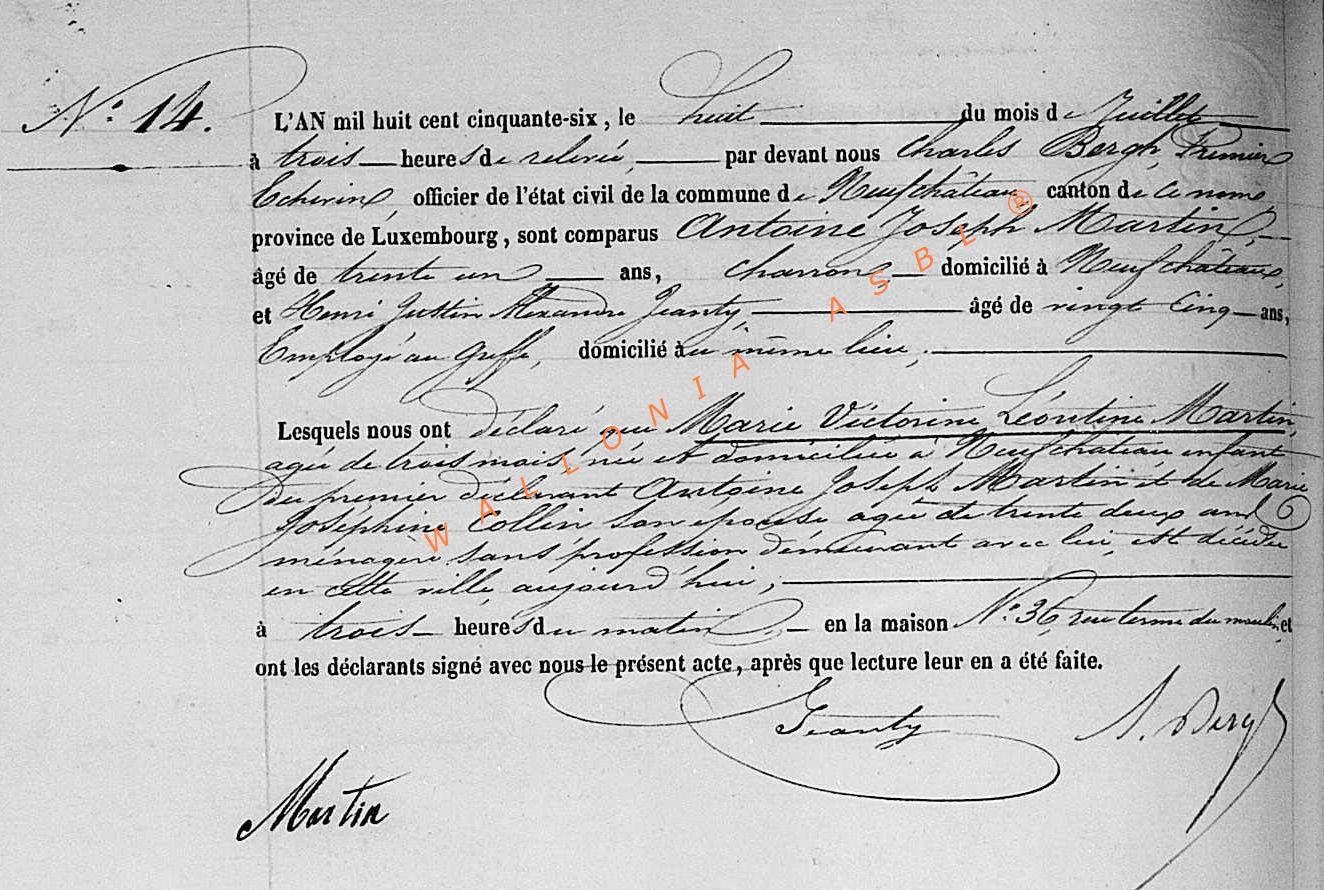 N.º 14.
L'AN mil huit cent cinquante-six, le huit du mois de Juillet
à trois heures de relevée, par devant nous Charles Bergh, Premier
Echevin, officier de l'état civil de la commune de Neufchâteau, canton de ce nom,
province de Luxembourg, sont comparus Antoine Joseph Martin,
âgé de trente un ans, charron, domicilié à Neufchâteau,
et Henri Justin Alexandre Jeanty, âgé de vingt cinq ans,
Employé au Greffe, domicilié au même lieu,
Lesquels nous ont déclaré que Marie Victorine Léontine Martin,
agée de trois mois, née et domiciliée à Neufchateau enfant
du premier déclarant Antoine Joseph Martin et de Marie
Joséphine Collin son épouse agée de trente deux ans
ménagère sans profession demeurant avec lui, est décédée
en cette ville, aujourd'hui,
à trois heures du matin, en la maison N.º 36, rue terme du moulin, et
ont les déclarants signé avec nous le présent acte, après que lecture leur en a été faite.
Jeanty Bergh
Martin
WALLONIA ASBL ®